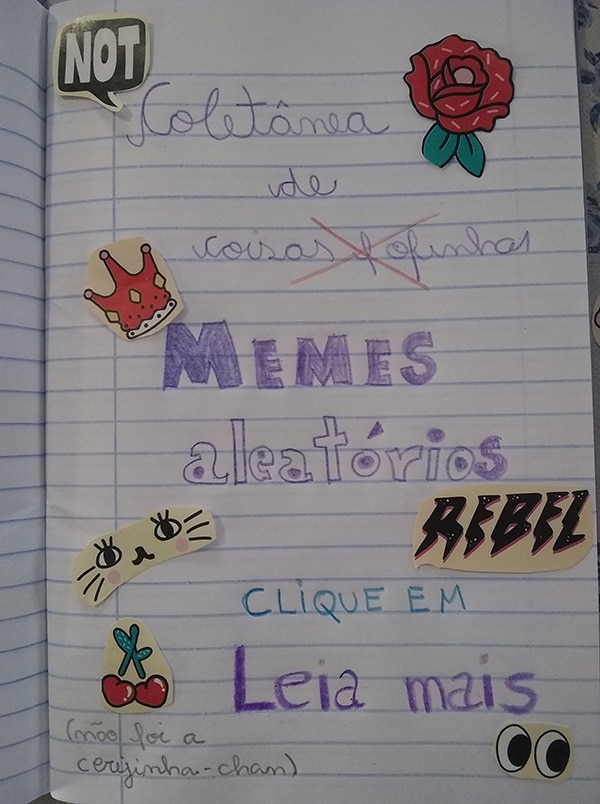 NOT
Coletânea
de
coisas fofinhas
MEMES
aleatórios
REBEL
CLIQUE EM
Leia mais
(não foi a
cerejinha-chan)